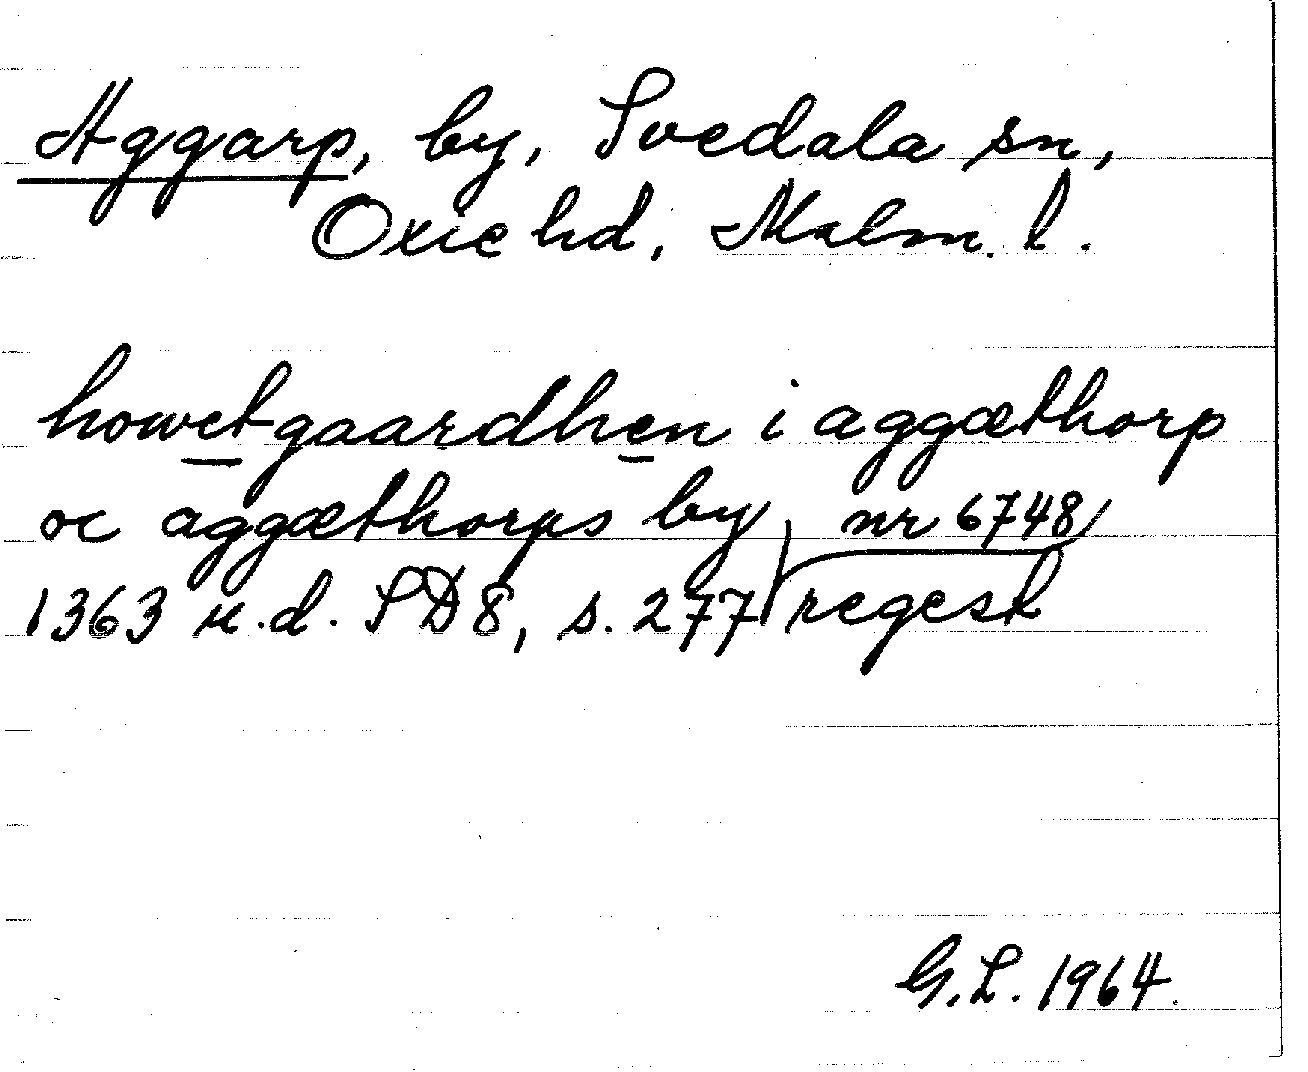 Aggarp, by, Svedala sn,
Oxie hd, Malm. l.
howetgaardhen i aggæthorp
oc aggæthorps by, nr 6748,
1363 u.d. SD8, s. 277 regest
G.L. 1964.